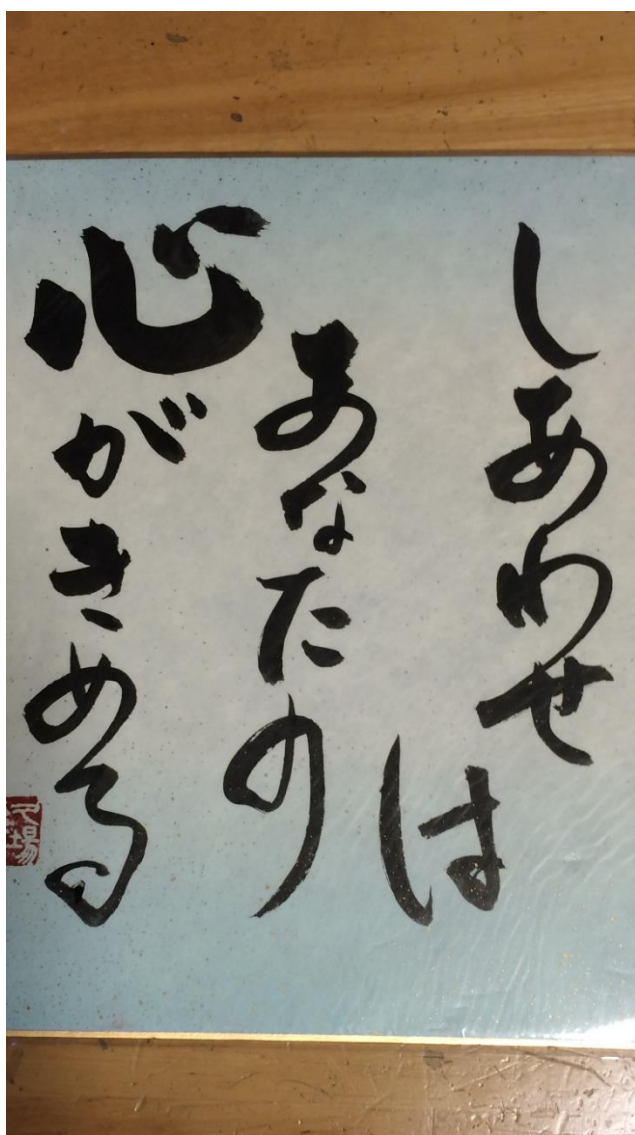 しあわせは
あなたの
心がきめる